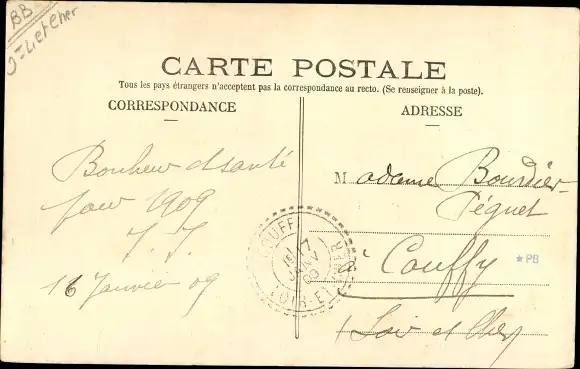 BB
Loir et Cher
CARTE POSTALE
Tous les pays étrangers n'acceptent pas la correspondance au recto. (Se renseigner à la poste).
CORRESPONDANCE
ADRESSE
Bonheur et santé
pour 1909
16 Janvier 09
Madame Bourdier-
Péguet
à Couffy
Loir et Cher
COUFFY
17
JANV
09
LOIR-ET-CHER
★PB